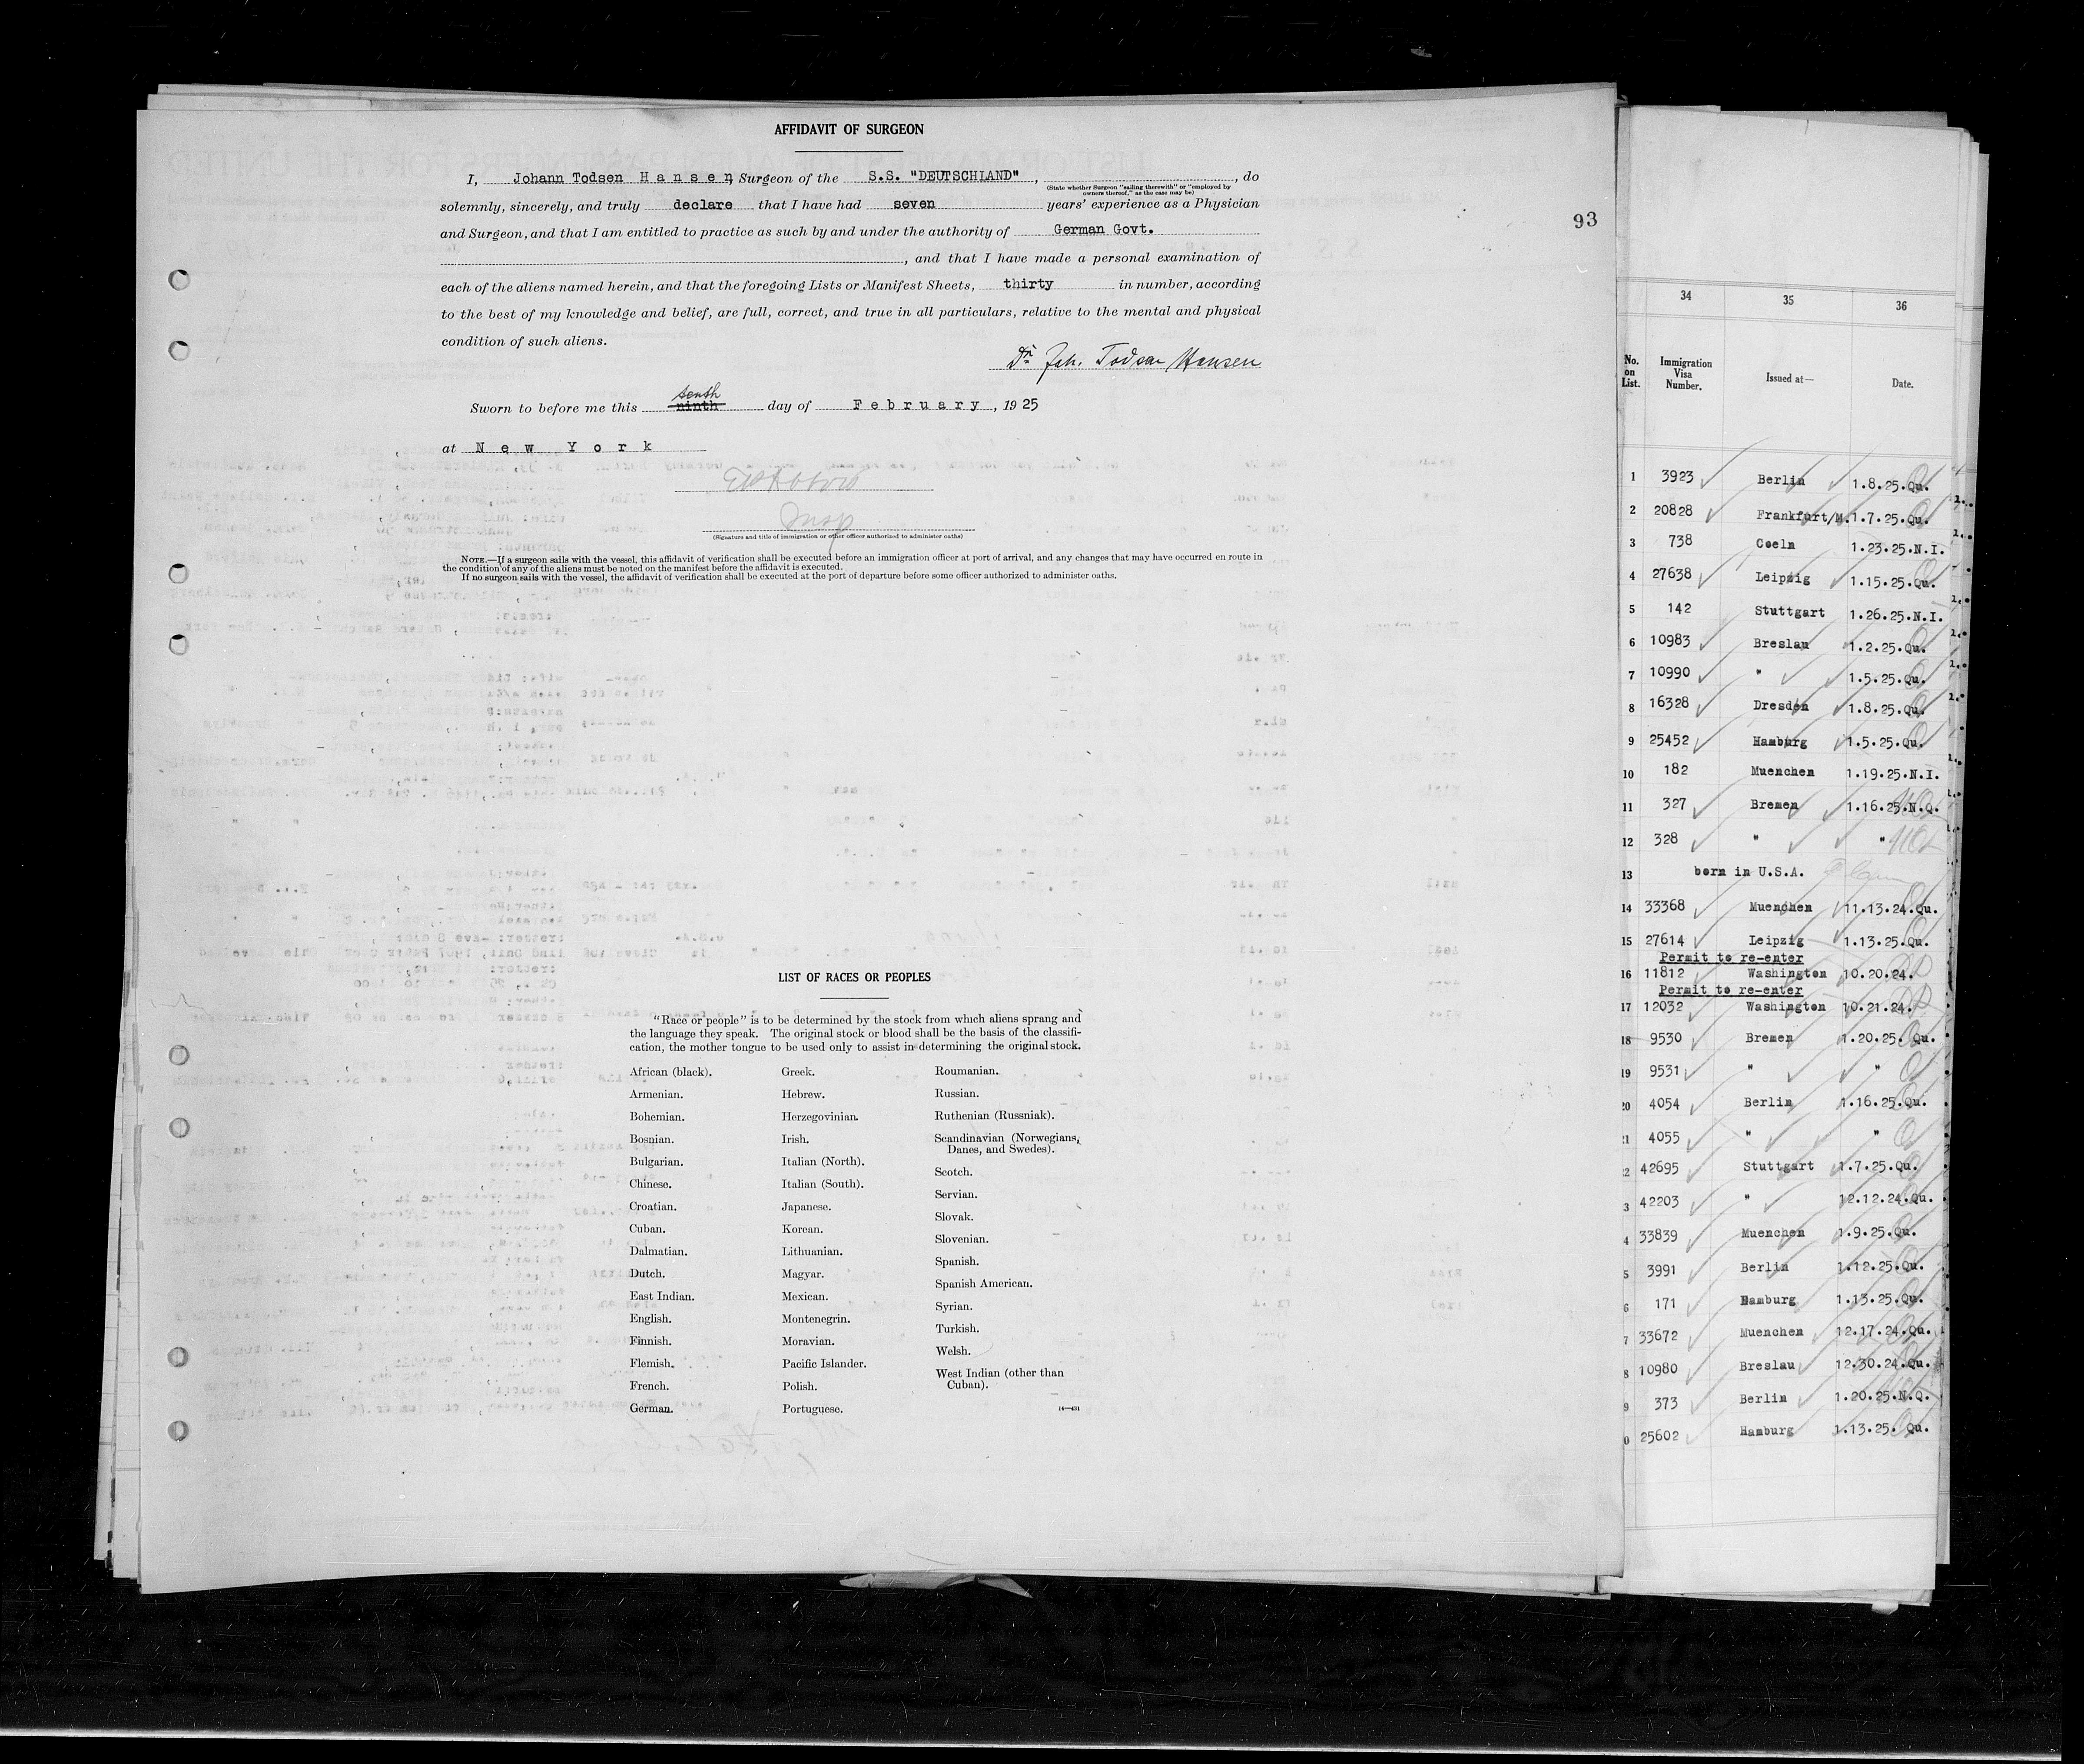 AFFIDAVIT OF SURGEON
I, Johann Todsen Hansen, Surgeon of the S.S. "DEUTSCHLAND", , do
(State whether Surgeon "sailing therewith" or "employed by
owners thereof," as the case may be)
solemnly, sincerely, and truly declare that I have had seven years' experience as a Physician
and Surgeon, and that I am entitled to practice as such by and under the authority of German Govt.
, and that I have made a personal examination of
each of the aliens named herein, and that the foregoing Lists or Manifest Sheets, thirty in number, according
to the best of my knowledge and belief, are full, correct, and true in all particulars, relative to the mental and physical
condition of such aliens.
Dr. Joh. Todsen Hansen
tenth
Sworn to before me this ninth day of February, 1925
at New York
Insp
(Signature and title of immigration or other officer authorized to administer oaths)
NOTE.—If a surgeon sails with the vessel, this affidavit of verification shall be executed before an immigration officer at port of arrival, and any changes that may have occurred en route in
the condition of any of the aliens must be noted on the manifest before the affidavit is executed.
If no surgeon sails with the vessel, the affidavit of verification shall be executed at the port of departure before some officer authorized to administer oaths.
LIST OF RACES OR PEOPLES
"Race or people" is to be determined by the stock from which aliens sprang and
the language they speak. The original stock or blood shall be the basis of the classifi-
cation, the mother tongue to be used only to assist in determining the original stock.
African (black).
Armenian.
Bohemian.
Bosnian.
Bulgarian.
Chinese.
Croatian.
Cuban.
Dalmatian.
Dutch.
East Indian.
English.
Finnish.
Flemish.
French.
German.
Greek.
Hebrew.
Herzegovinian.
Irish.
Italian (North).
Italian (South).
Japanese.
Korean.
Lithuanian.
Magyar.
Mexican.
Montenegrin.
Moravian.
Pacific Islander.
Polish.
Portuguese.
Roumanian.
Russian.
Ruthenian (Russniak).
Scandinavian (Norwegians,
Danes, and Swedes).
Scotch.
Servian.
Slovak.
Slovenian.
Spanish.
Spanish American.
Syrian.
Turkish.
Welsh.
West Indian (other than
Cuban).
14—431
93
34 35 36
No.
on
List.
Immigration
Visa
Number.
Issued at—
Date.
1 3923 Berlin 1.8.25.Qu.
2 20828 Frankfurt/M. 1.7.25.Qu.
3 738 Coeln 1.23.25.N.I.
4 27638 Leipzig 1.15.25.Qu.
5 142 Stuttgart 1.26.25.N.I.
6 10983 Breslau 1.2.25.Qu.
7 10990 " 1.5.25.Qu.
8 16328 Dresden 1.8.25.Qu.
9 25452 Hamburg 1.5.25.Qu.
10 182 Muenchen 1.19.25.N.I.
11 327 Bremen 1.16.25.N.Q.
12 328 " "
13 born in U.S.A.
14 33368 Muenchen 11.13.24.Qu.
15 27614 Leipzig 1.13.25.Qu.
Permit to re-enter
16 11812 Washington 10.20.24.
Permit to re-enter
17 12032 Washington 10.21.24.
18 9530 Bremen 1.20.25. Qu.
19 9531 " "
20 4054 Berlin 1.16.25.Qu.
1 4055 " "
2 42695 Stuttgart 1.7.25.Qu.
3 42203 " 12.12.24.Qu.
4 33839 Muenchen 1.9.25.Qu.
5 3991 Berlin 1.12.25.Qu.
6 171 Hamburg 1.13.25.Qu.
7 33672 Muenchen 12.17.24.Qu.
8 10980 Breslau 12.30.24.Qu.
9 373 Berlin 1.20.25.N.Q.
0 25602 Hamburg 1.13.25. Qu.